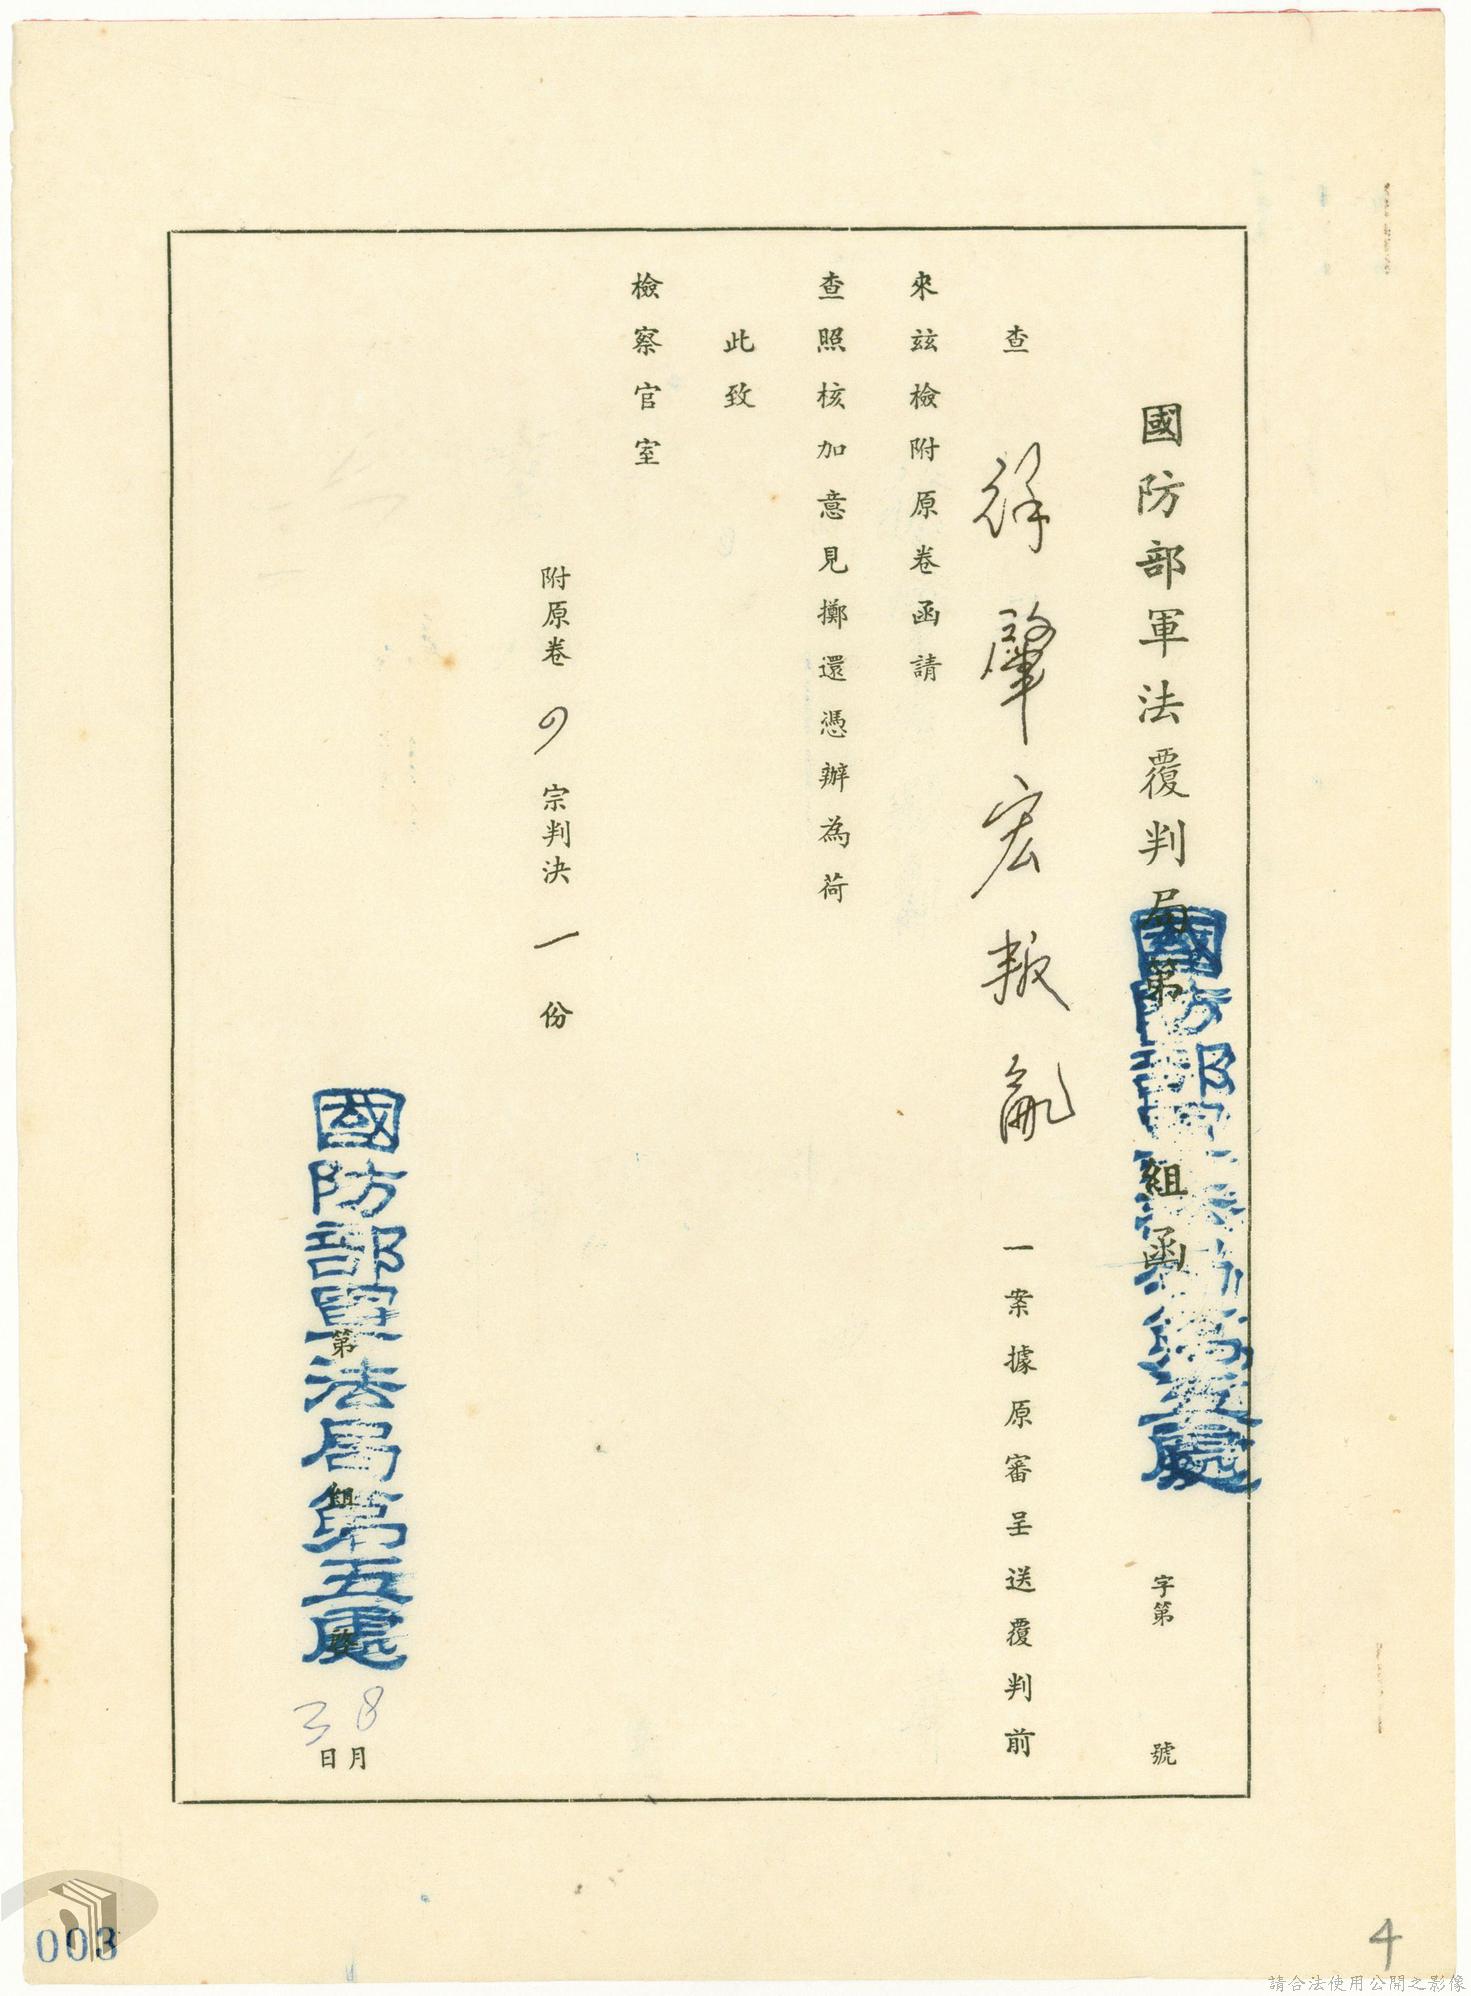 國防部軍法覆判局第 組函 字第 號
國防部軍法局第五處
查 徐肇宏叛亂 一案據原審呈送覆判前
來茲檢附原卷函請
查照核加意見擲還憑辦為荷
此致
檢察官室
附原卷 宗判決 一 份
國防部軍法局第五處
第 組 啟
8月
3日
003
4
請合法使用公開之影像